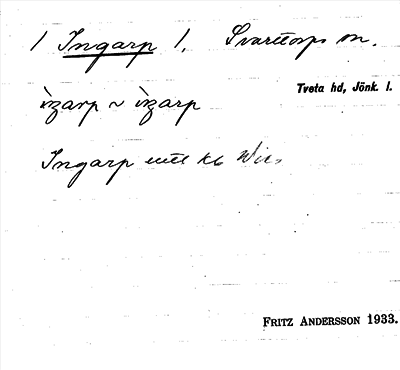 1 Ingarp 1. Svarttorps sn.
Tveta hd, Jönk. l.
ìŋarp ~ ìŋarp
Ingarp
FRITZ ANDERSSON 1933.